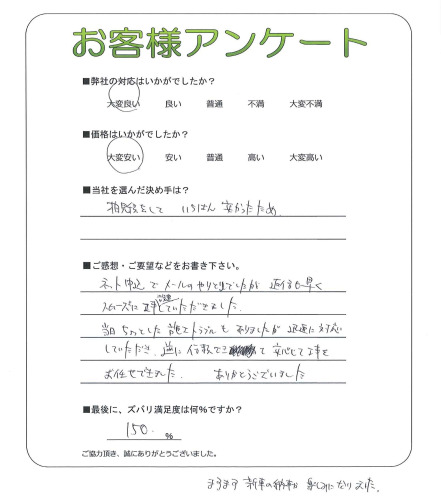 お客様アンケート
■弊社の対応はいかがでしたか?
大変良い 良い 普通 不満 大変不満
■価格はいかがでしたか?
大変安い 安い 普通 高い 大変高い
■当社を選んだ決め手は?
相見積をして いちばん 安かったため.
■ご感想・ご要望などをお書き下さい。
ネット申込で メールのやりとりでしたが 返信も早く
スムーズに していただきました.
当日 ちょっとした トラブルも ありましたが 迅速に 対応
していただき. 逆に 信頼でき て 安心して 工事を
お任せできました. ありがとうございました
■最後に、ズバリ満足度は何%ですか?
150. %
ご協力頂き、誠にありがとうございました。
ますます 新車の納車が 楽しみになりました.